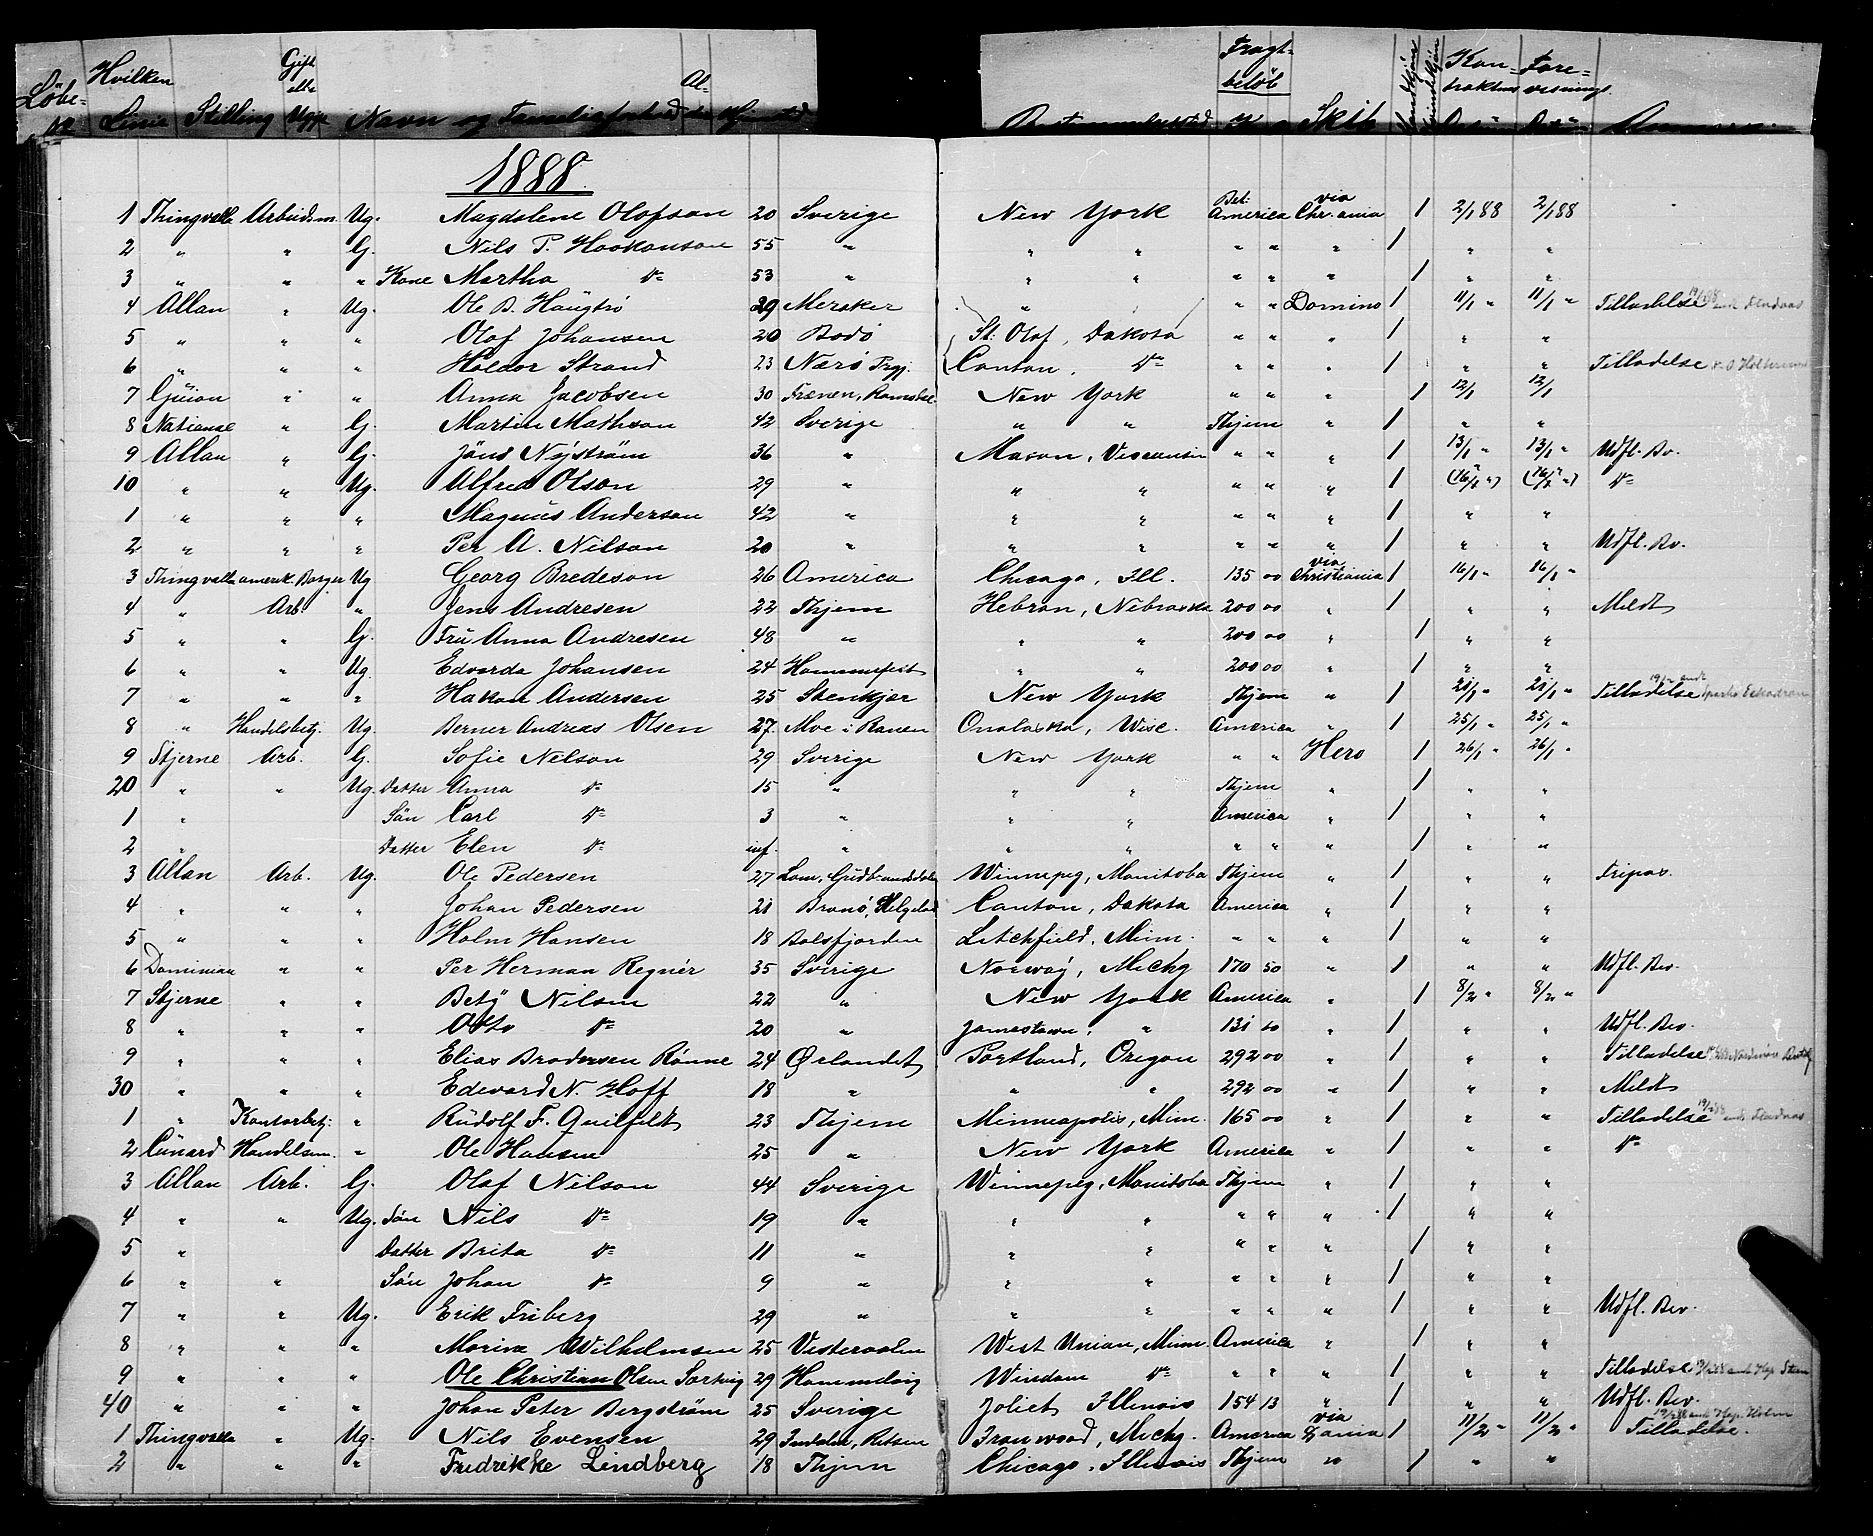 Löbe- Hvilken Linie Stilling Gift eller Ugift Navn og Familieforhold Al- Hjemsted Bestemmelsessted Fragt- belöb Skib Mandkjön Kvindekjön Kon- traktens Datum Fore- visnings Datum
1888
1 Thingvalla Arbeidsm. Ug. Magdalene Olofson 20 Sverige New York Bet. America via Chr.ania 1 2/1 88 2/1 88
2 " " G. Nils P. Haakanson 55 " " " " " " 1 " "
3 " " " Kone Martha Do 53 " " " " " " 1 " "
4 Allan " Ug. Ole B. Haugtrö 29 Meraker " " " Domino 1 11/1 " 11/1 " Tilladelse
5 " " " Olaf Johansen 20 Bodö St. Olaf, Dakota " " " 1 " "
6 " " " Haldor Strand 23 Nærö Prgj. Canton, Do " " " 1 " " Tilladelse
7 Guion " " Anna Jacobsen 30 Frænen, Romsdal New York " " " 1 12/1 12/1
8 National " G. Martin Mathson 42 Sverige " " Thjem " 1 " "
9 Allan " G. Jöns Nyström 36 " Mason, Visconsin " " " 1 13/1 " 13/1 " Udfl. Bv.
10 " " Ug. Alfred Olson 29 " " " " " " 1 (16/1 ") (16/1 ") Do
1 " " " Magnus Anderson 42 " " " " " " 1 " "
2 " " " Per A. Nilson 20 " " " " " " 1 " " Udfl. Bv.
3 Thingvalla amerik. Borger Ug Georg Bredeson 26 America Chicago, Ill. 135 00 via Christiania 1 16/1 " 16/1 "
4 " Arb. " Jens Andresen 22 Thjem Hebron, Nebraska 200 00 " 1 " " Meldt
5 " " G. Fru Anna Andresen 48 " " " 200 00 " 1 " "
6 " " Ug. Edvarda Johansen 24 Hammerfest " " 200 00 " 1 " "
7 " " " Hakon Andersen 25 Stenkjær New York Thjem " 1 21/1 " 21/1 " Tilladelse
8 " Handelsbetj. Ug. Berner Andreas Olsen 27 Moe i Ranen Onalaska, Wisc. America " 1 25/1 " 25/1 "
9 Stjerne Arb. G. Sofie Nelson 29 Sverige New York " " Hero 1 26/1 " 26/1 "
20 " " Ug. Datter Anna Do 15 " " " Thjem " 1 " "
1 " Sön Carl Do 3 " " " America " 1 " "
2 " Datter Elen Do inf. " " " " " " 1 " "
3 Allan Arb. Ug. Ole Pedersen 27 Lom, Gudbrandsdalen Winnepeg, Manitoba Thjem " 1 " " Fripas.
4 " " " Johan Pedersen 21 Brönö, Helgeland Canton, Dakota America " 1 " "
5 " " " Holm Hansen 18 Balsfjorden Litchfield, Minn. " " " 1 " "
6 Dominion " " Per Herman Regnér 35 Sverige Norway, Michg 170 50 " 1 " " Udfl. Bev.
7 Stjerne " " Bety Nilson 22 " New York America " 1 8/2 " 8/2 "
8 " " " Otto Do 20 " Jamestown, " 131 50 " 1 " " Udfl. Bev.
9 " " " Elias Brodersen Rönne 24 Ørlandet Portland, Oregon 292 00 " 1 " " Tilladelse
30 " " " Edevard N. Hoff 18 " " " 292 00 " 1 " " Meldt
1 " Kontorbetj. " Rudolf F. Quilfeldt 23 Thjem Minneapolis, Minn. 165 00 " 1 " " Tilladelse
2 Cunard Handelsm. " Ole Hansen 25 " New York America " 1 " " Do
3 Allan Arb. G. Olaf Nilson 44 Sverige Winnepeg, Manitoba Thjem " 1 " "
4 " " Ug. Sön Nils Do 19 " " " " " " 1 " "
5 " Datter Brita Do 11 " " " " " " 1 " "
6 " " Sön Johan Do 9 " " " " " " 1 " "
7 " " Ug. Erik Friberg 29 " " " " " " 1 " " Udfl. Bev.
8 " " " Marine Wilhelmsen 25 Vesteraalen West Union, Minn. America " 1 " "
9 " " " Ole Christian Olsen Sortvig 29 Hammelvig Windom Do " " " 1 " " Tilladelse
40 " " " Johan Peter Bergström 25 Sverige Joliet, Illinois 154 13 " 1 " " Udfl. Bev.
1 Thingvalla " Ug. Nils Evensen 29 Inndalen, Ritsen Ironwood, Michg. America via Xania 1 11/2 " 11/2 " Tilladelse.
2 " " " Fredrikke Lindberg 18 Thjem Chicago, Illinois Thjem " 1 " "